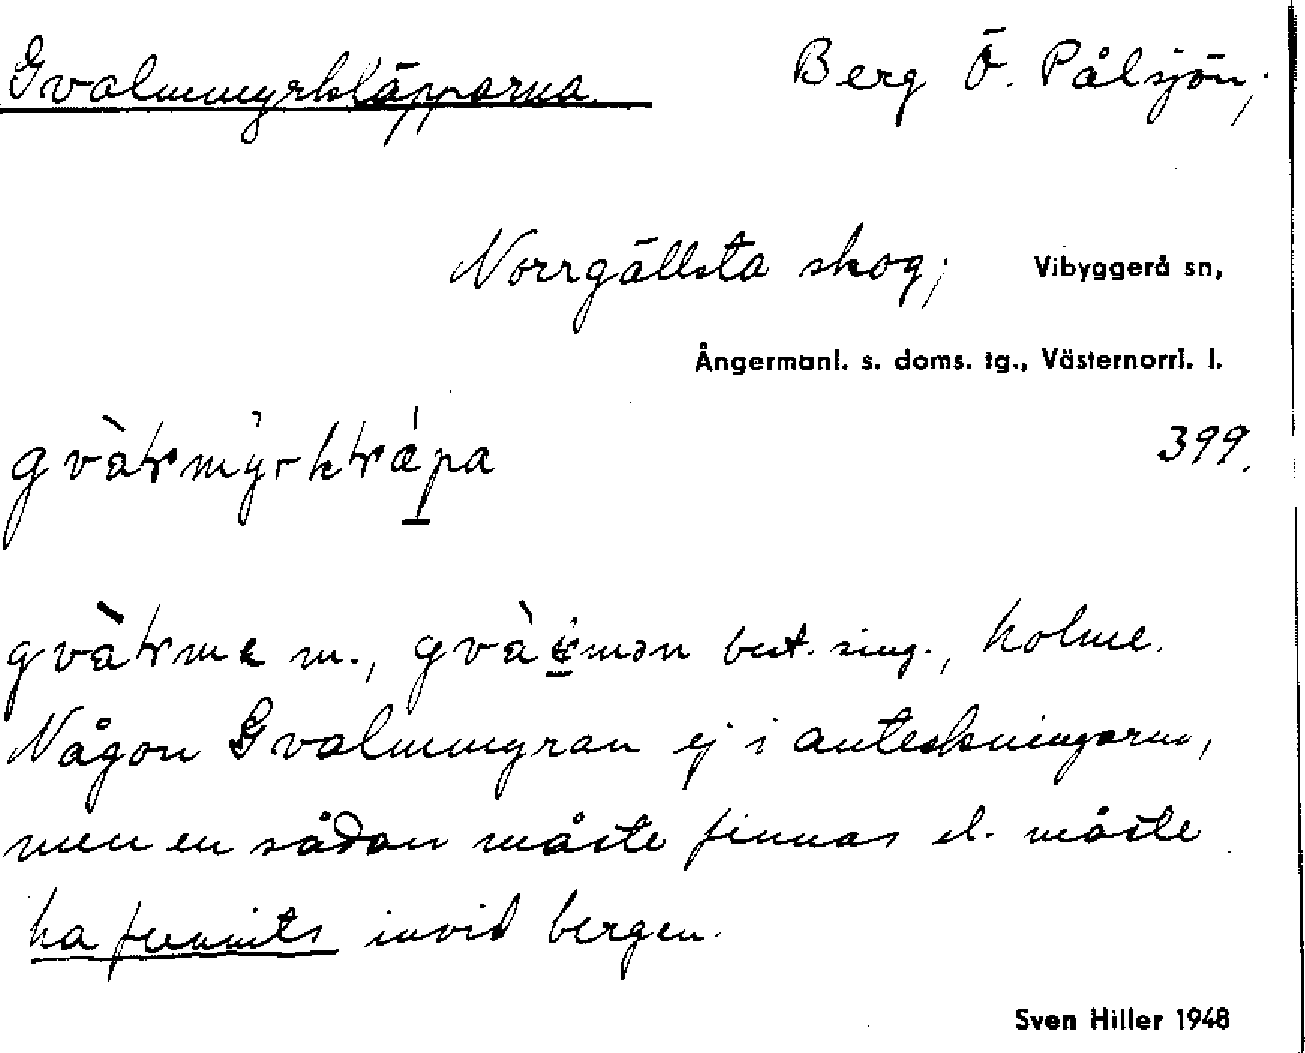 Gvalmmyrkläpparna. Berg Ö. Pålsjön;
Norrgällsta skog; Vibyggerå sn,
Ångermanl. s. doms. tg., Västernorrl. l.
399.
m., best. sing., holme.
Någon Gvalmmyran ej i anteckningarna,
men en sådan måste finnas el. måste
ha funnits invid bergen.
Sven Hiller 1948